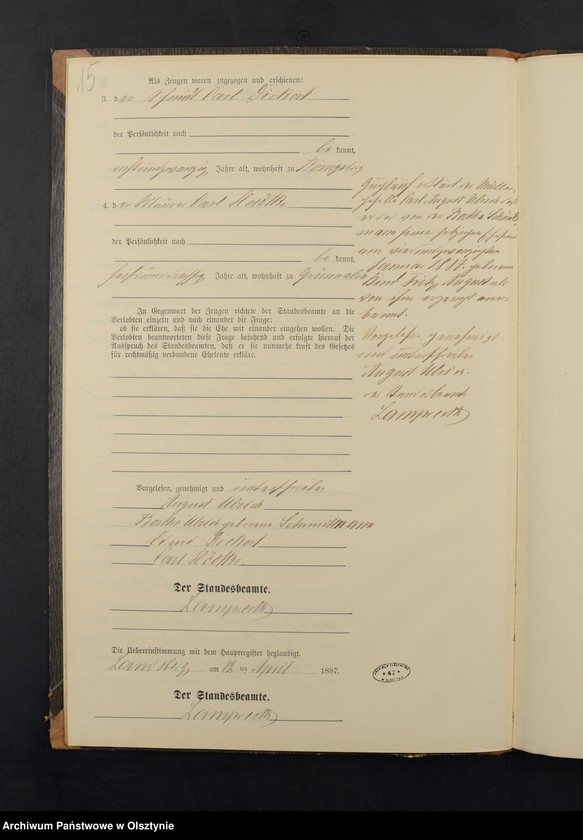 15
Als Zeugen waren zugezogen und erschienen:
3. der Schmied Carl Dickert
der Persönlichkeit nach
be kannt,
Jahre alt, wohnhaft zu
4. der Maurer Carl
der Persönlichkeit nach
be kannt,
sechsunddreißig Jahre alt, wohnhaft zu Grünwalde
In Gegenwart der Zeugen richtete der Standesbeamte an die
Verlobten einzeln und nach einander die Frage:
ob sie erklären, daß sie die Ehe mit einander eingehen wollen. Die
Verlobten beantworteten diese Frage bejahend und erfolgte hierauf der
Ausspruch des Standesbeamten, daß er sie nunmehr kraft des Gesetzes
für rechtmäßig verbundene Eheleute erkläre.
Vorgelesen, genehmigt und unterschrieben
August Ulrich
Bertha Ulrich geborene Schmidtmann
Carl Dickert
Carl
Der Standesbeamte.
Lamprecht
Die Uebereinstimmung mit dem Hauptregister beglaubigt.
Landsberg am 12 ten April 1887.
Der Standesbeamte.
Lamprecht
Zugleich erklärt der
Carl August Ulrich daß
er das von der Bertha Schmidt-
mann
am vierundzwanzigsten
Januar 1887 geborene
Kind Fritz August als
von ihm erzeugt aner-
kannt.
Vorgelesen genehmigt
und unterschrieben
August Ulrich
Der Standesbeamte
Lamprecht
Archiwum Państwowe w Olsztynie